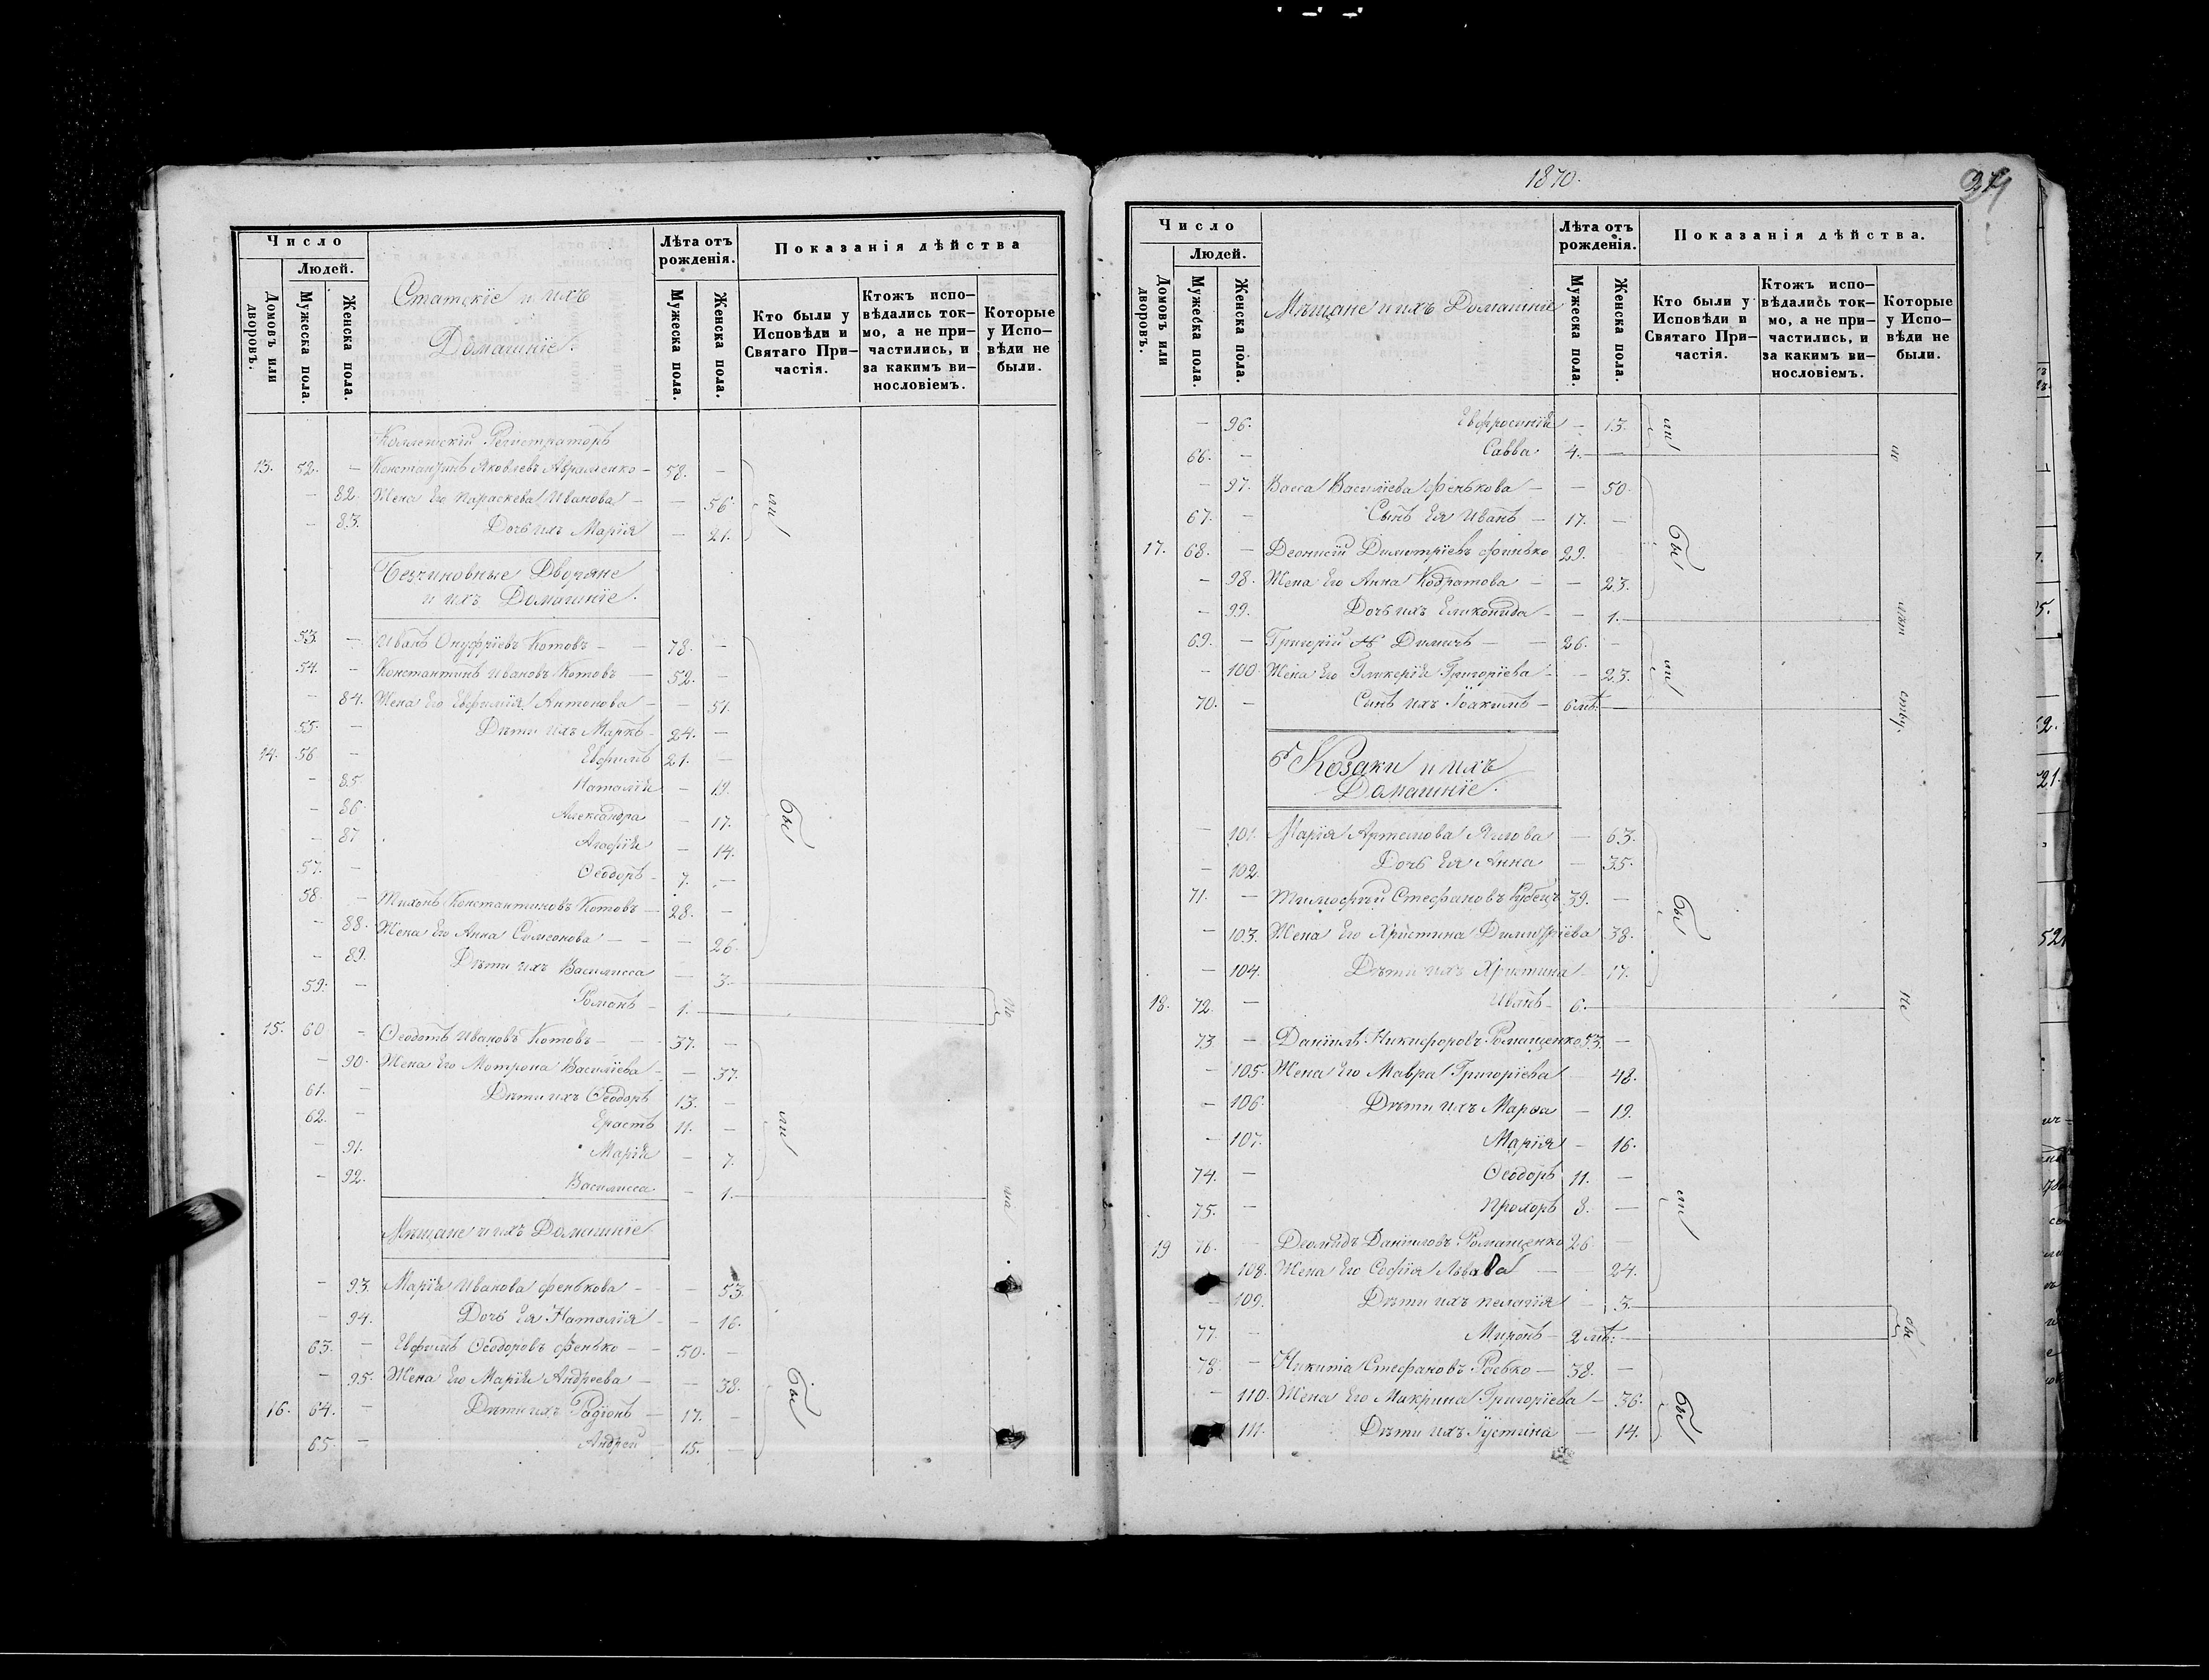 Число
Людей.
Домовъ или дворовъ.
Мужеска пола.
Женска пола.
Статскіе и ихъ
Домашніе.
Лѣта отъ рожденія.
Мужеска пола.
Женска пола.
Показанія дѣйства
Кто были у Исповѣди и Святаго При-частія.
Ктожъ испо-вѣдались ток-мо, а не при-частились, и за какимъ ви-нословіемъ.
Которые у Испо-вѣди не были.
Коллежскій Регистраторъ
13. 52. — Константинъ Яковлевъ Авраменко — 58. —
— 82. Жена Его Параскева Иванова — — 56.
— 83. Дочь ихъ Марія — 21.
Безчиновные Дворяне
и ихъ Домашніе.
53. — Иванъ Онуфріевъ Котовъ — 78. —
54. — Константинъ Ивановъ Котовъ — 52. —
— 84. Жена Его Евфимія Антонова — — 51.
55. — Дѣти ихъ Маркъ — 24. —
14. 56 — Евфимъ 21. —
— 85. Наталія — 19.
— 86. Александра — 17.
— 87 Агафія — 14.
57. — Ѳеодоръ — 7. —
58. — Тихонъ Константиновъ Котовъ — 28. —
— 88. Жена Его Анна Симеонова — — 26.
— 89. Дѣти ихъ Василисса — 3.
59. — Романъ — 1.
15. 60 — Ѳеодотъ Ивановъ Котовъ — 37. —
— 90. Жена Его Мотрона Василіева — — 37.
61. — Дѣти ихъ Ѳеодоръ 13. —
62. — Ерастъ 11. —
— 91. Марія — 7.
— 92. Василисса — 1.
Мѣщане и ихъ Домашніе.
— 93. Марія Иванова Фенькова — — 53.
— 94. Дочь Ея Наталія — — 16.
63. — Евфимъ Ѳеодоровъ Фенько — 50. —
— 95. Жена Его Марія Андреева — — 38.
16. 64. — Дѣти ихъ Радіонъ — 17. —
65. — Андрей — 15. —
бы
ли
1870.
Число
Людей.
Домовъ или дворовъ.
Мужеска пола.
Женска пола.
Мѣщане и ихъ Домашніе
Лѣта отъ рожденія.
Мужеска пола.
Женска пола.
Показанія дѣйства.
Кто были у Исповѣди и Святаго При-частія.
Ктожъ испо-вѣдались ток-мо, а не при-частились, и за какимъ ви-нословіемъ.
Которые у Испо-вѣди не были.
— 96. Евфросинія — 13.
66. — Савва 4. —
— 97. Васса Василіева Фенькова — — 50.
67. — Сынъ Ея Иванъ — 17. —
17. 68. — Деонисій Димитріевъ Финько 29.
— 98. Жена Его Анна Кодратова — — 23.
— 99. Дочь ихъ Еликонида — — 1.
69. — Григорій Димичъ — 26. —
— 100 Жена Его Гликерія Григоріева — — 23.
70. — Сынъ ихъ Іоакимъ — 6 мѣ.
Козаки и ихъ
Домашніе.
— 101. Марія Артемова — 63.
— 102. Дочь Ея Анна — 35.
71. — Тимофѣй Стефановъ Рубецъ 39. —
— 103. Жена Его Христина Димитріева 38.
— 104. Дѣти ихъ Христина — 17.
18. 72. — Иванъ — 6.
73 — Даніилъ Никифоровъ Романценко 53. —
— 105. Жена Его Мавра Григоріева — 48.
— 106. Дѣти ихъ Марѳа — 19.
— 107. Марія — 16.
74. — Ѳеодоръ 11. —
75. — Прохоръ 8. —
19 76. — Деомидъ Даніиловъ Романценко 26 —
108. Жена Его Софія Львова — 24.
— 109. Дѣти ихъ Пелагія — 3.
77. — Миронъ — 2 мѣ.
78. — Никита Стефановъ — 38. —
— 110. Жена Его Макрина Григоріева — 36.
111. Дѣти ихъ Іустина — 14.